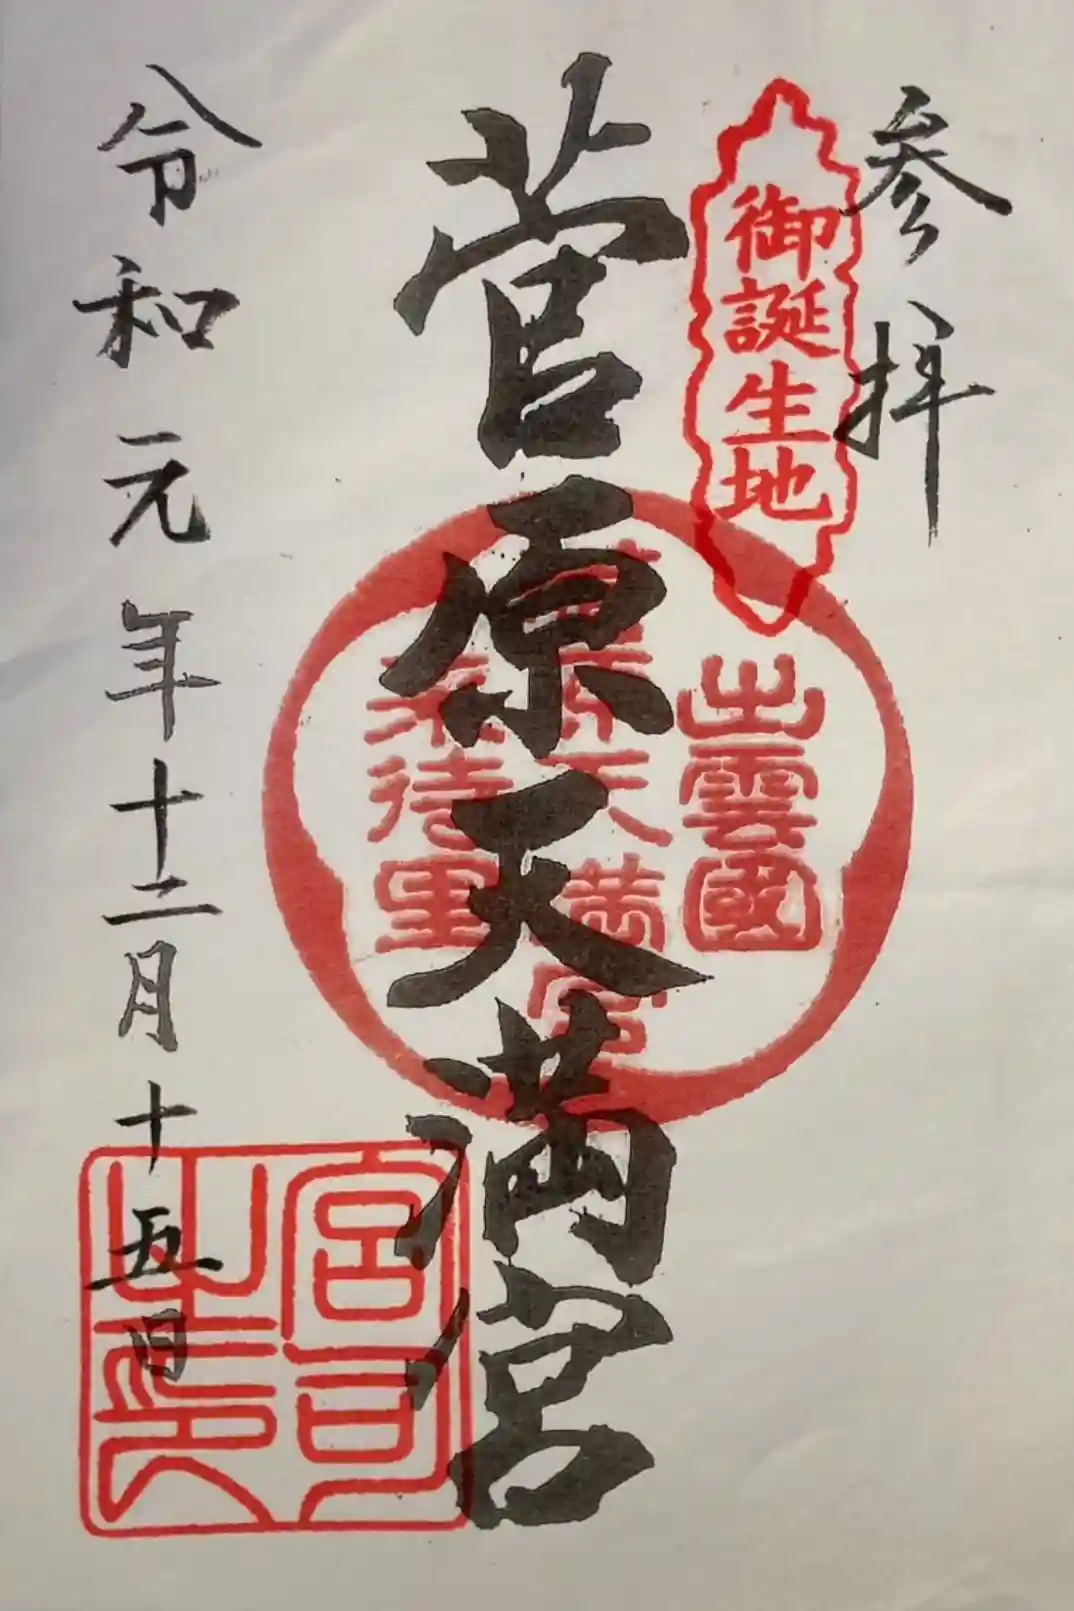 参拝
御誕生地
菅原天満宮
出雲國
菅原天満宮
来待里
令和元年十二月十五日
宮司之印